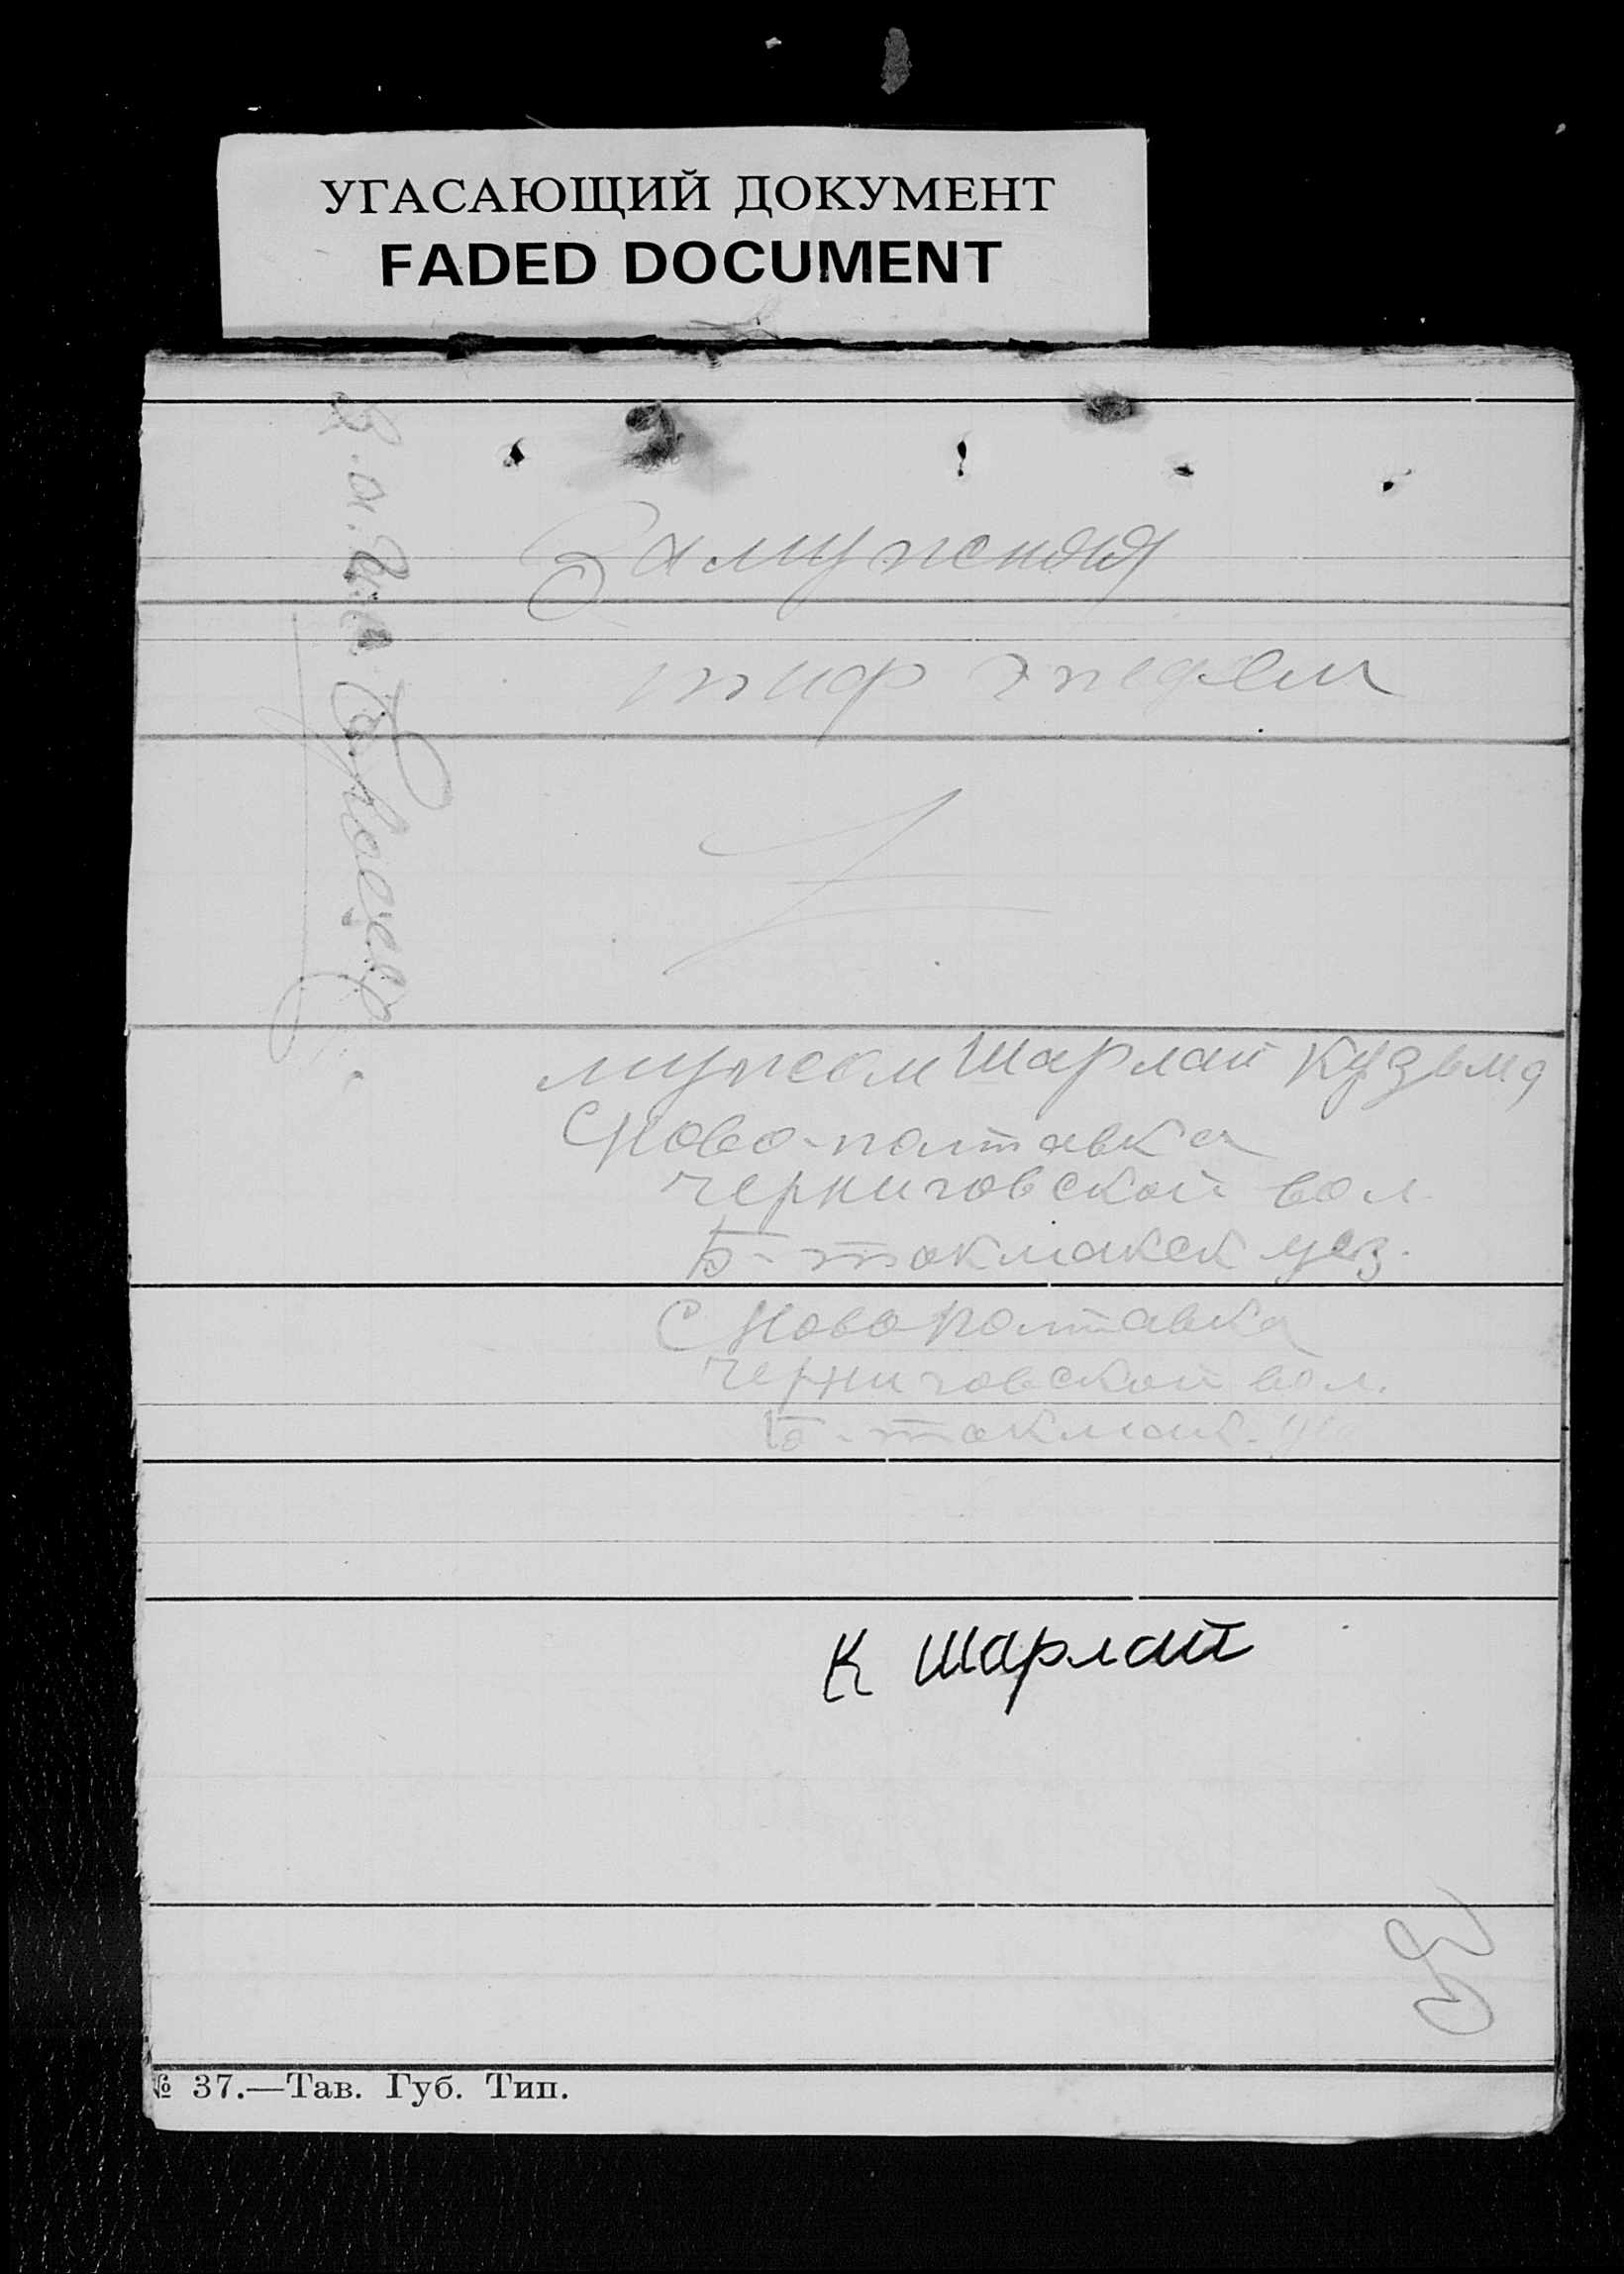 УГАСАЮЩИЙ ДОКУМЕНТ
FADED DOCUMENT
Замужняя
тиф
мужем Шарлай Кузьма
С Ново-полтавка
черниговской вол
Б-токмакск уез.
С Новополтавка
черниговской вол.
Б-токмак.
К Шарлай
№ 37.—Тав. Губ. Тип.